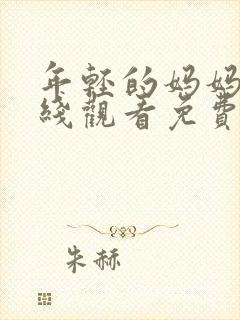 年轻的妈妈
线觀看免費
朱赫